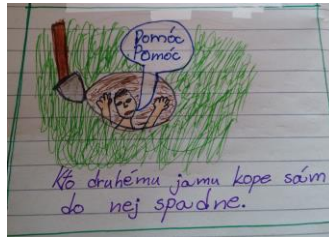 Pomóc
Pomóc
Kto druhému jamu kope sám
do nej spadne.